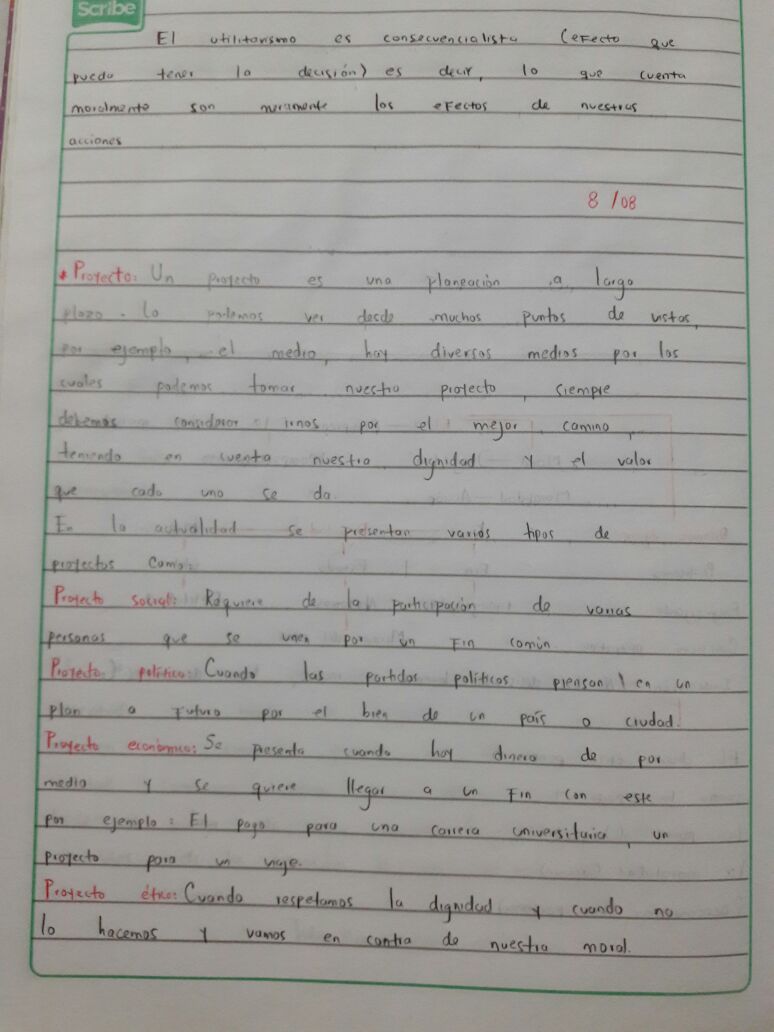 Scribe
El utilitarismo es consecuencialista (efecto que
puede tener la decisión) es decir, lo que cuenta
moralmente son meramente los efectos de nuestras
acciones
8 /08
* Proyecto: Un proyecto es una planeación a largo
plazo. Lo podemos ver desde muchos puntos de vistas,
por ejemplo, el medio, hay diversos medios por los
cuales podemos tomar nuestro proyecto, siempre
debemos considerar irnos por el mejor camino,
teniendo en cuenta nuestra dignidad y el valor
que cada uno se da.
En la actualidad se presentan varios tipos de
proyectos como:
Proyecto social: Requiere de la participación de varias
personas que se unen por un fin común
Proyecto político: Cuando las partidos políticos piensan en un
plan a futuro por el bien de un país o ciudad.
Proyecto económico: Se presenta cuando hay dinero de por
medio y se quiere llegar a un fin con este
por ejemplo: El pago para una carrera universitaria, un
proyecto para un viaje.
Proyecto ético: Cuando respetamos la dignidad y cuando no
lo hacemos y vamos en contra de nuestra moral.